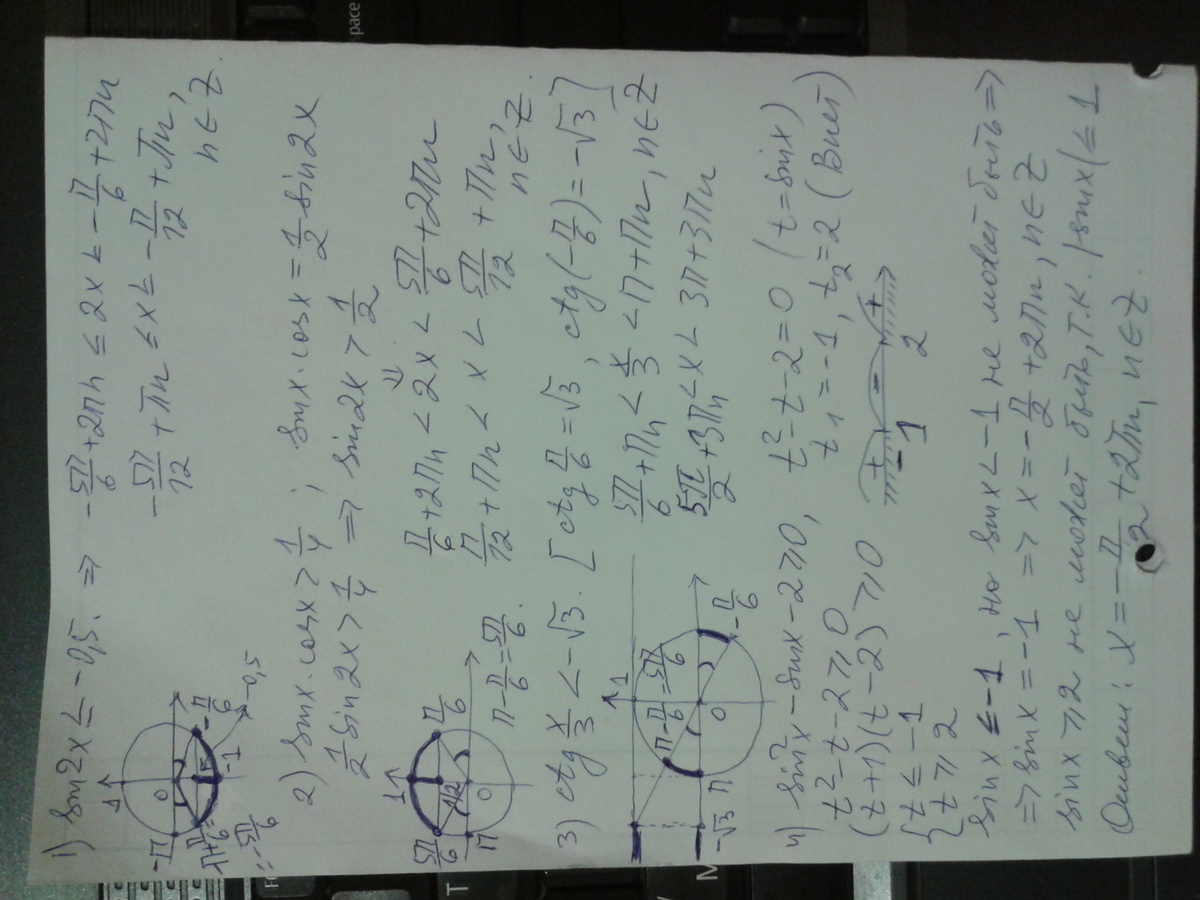 1) sin2x ≤ -0,5. ⇒ -5π/6+2πn ≤ 2x ≤ -π/6+2πn
-5π/12+πn ≤ x ≤ -π/12+πn,
n∈Z.
1
0
-π
π+π/6=
=-5π/6
-π/6
-0,5
-1
2) sinx·cosx > 1/4 ; sinx·cosx = 1/2 sin2x
1/2 sin2x > 1/4 ⇒ sin2x > 1/2
⇓
π/6+2πn < 2x < 5π/6+2πn
π/12+πn < x < 5π/12+πn,
n∈Z.
1
5π/6
π/6
1/2
π
0
π-π/6=5π/6.
3) ctg x/3 < -√3. [ctg π/6 = √3, ctg(-π/6) = -√3]
5π/6+πn < x/3 < π+πn, n∈Z
5π/2+3πn < x < 3π+3πn
1
π-π/6=5π/6
-√3
π
0
-π/6
4) sin²x - sinx - 2 ≥ 0, t²-t-2=0 (t=sinx)
t²-t-2 ≥ 0 t₁=-1, t₂=2 (Виет)
(t+1)(t-2) ≥ 0
+ - +
-1 2
{ t ≤ -1
t ≥ 2
sinx ≤ -1, но sinx < -1 не может быть ⇒
⇒ sinx = -1 ⇒ x = -π/2+2πn, n∈Z
sinx ≥ 2 не может быть, т.к. |sinx| ≤ 1
Ответ: x = -π/2+2πn, n∈Z.